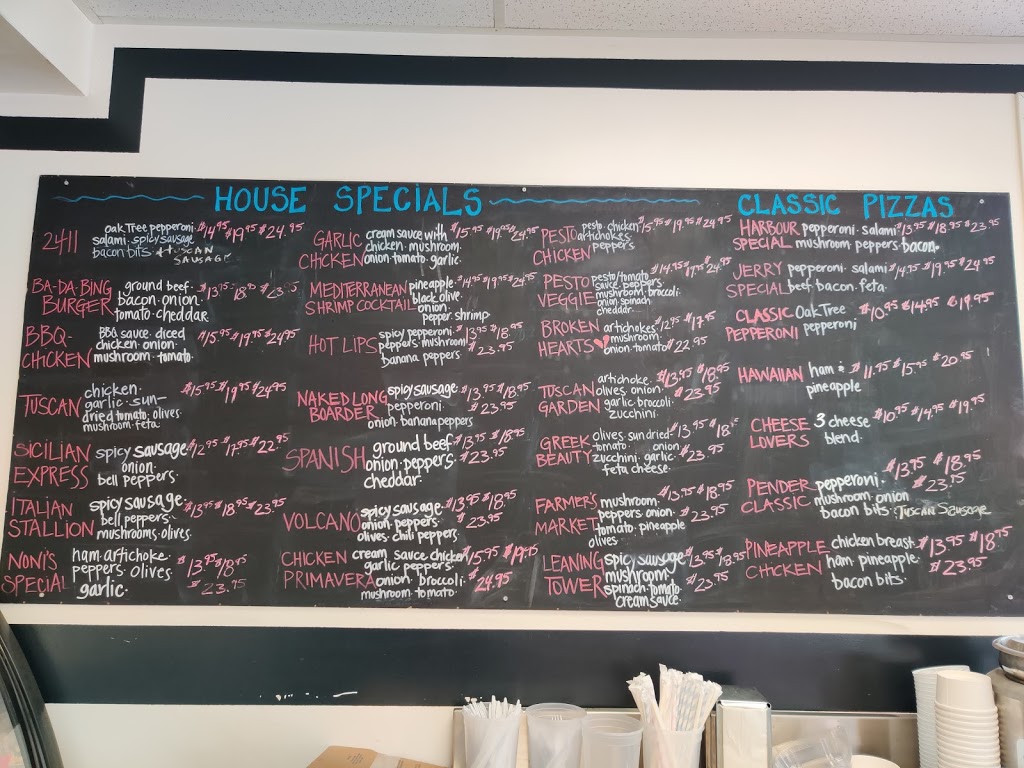 HOUSE SPECIALS
2411
oak Tree pepperoni
salami spicy sausage
bacon bits TUSCAN
SAUSAGE
$14.95 $19.95 $24.95
BA-DA-BING
BURGER
ground beef
bacon onion
tomato cheddar
$13.95 $18.95 $23.95
BBQ-
CHICKEN
BBQ sauce diced
chicken onion
mushroom tomato
$15.95 $19.95 $24.95
TUSCAN
chicken
garlic sun-
dried tomato olives
mushroom feta
$15.95 $19.95 $24.95
SICILIAN
EXPRESS
spicy sausage
onion
bell peppers
$12.95 $17.95 $22.95
ITALIAN
STALLION
spicy sausage
bell peppers
mushrooms olives
$13.95 $18.95 $23.95
NONI'S
SPECIAL
ham artichoke
peppers olives
garlic
$13.95 $18.95
23.95
GARLIC
CHICKEN
cream sauce with
chicken mushroom
onion tomato garlic
$15.95 $19.95 $24.95
MEDITERRANEAN
SHRIMP COCKTAIL
pineapple
black olive
onion
pepper shrimp
$14.95 $19.95 $24.95
HOT LIPS
spicy pepperoni
peppers mushroom
banana peppers
$13.95 $18.95
$23.95
NAKED LONG
BOARDER
spicy sausage
pepperoni
onion banana peppers
$13.95 $18.95
$23.95
SPANISH
ground beef
onion peppers
cheddar
$13.95 $18.95
$23.95
VOLCANO
spicy sausage
onion peppers
olives chili peppers
$13.95 $18.95
$23.95
CHICKEN
PRIMAVERA
cream sauce chicken
garlic peppers
onion broccoli
mushroom tomato
$15.95 $19.95
$24.95
PESTO
CHICKEN
pesto chicken
artichokes
peppers
$15.95 $19.95 $24.95
PESTO
VEGGIE
pesto/tomato
sauce peppers
mushroom broccoli
onion spinach
cheddar
$14.95 $19.95 $24.95
BROKEN
HEARTS
artichokes
mushroom
onion tomato
$12.95 $17.95
$22.95
TUSCAN
GARDEN
artichoke
olives onion
garlic broccoli
zucchini
$13.95 $18.95
$23.95
GREEK
BEAUTY
olives sundried
tomato onion
zucchini garlic
feta cheese
$13.95 $18.95
$23.95
FARMER'S
MARKET
mushroom
peppers onion
tomato pineapple
olives
$13.95 $18.95
$23.95
LEANING
TOWER
spicy sausage
mushroom
spinach tomato
cream sauce
$13.95 $18.95
$23.95
CLASSIC PIZZAS
HARBOUR
SPECIAL
pepperoni salami
mushroom peppers bacon
$13.95 $18.95 $23.95
JERRY
SPECIAL
pepperoni salami
beef bacon feta
$14.95 $19.95 $24.95
CLASSIC
PEPPERONI
Oak Tree
pepperoni
$10.95 $14.95 $19.95
HAWAIIAN
ham &
pineapple
$11.95 $15.95 $20.95
CHEESE
LOVERS
3 cheese
blend
$10.95 $14.95 $19.95
PENDER
CLASSIC
pepperoni
mushroom onion
bacon bits TUSCAN SAUSAGE
$13.95 $18.95
$23.95
PINEAPPLE
CHICKEN
chicken breast
ham pineapple
bacon bits
$13.95 $18.95
$23.95